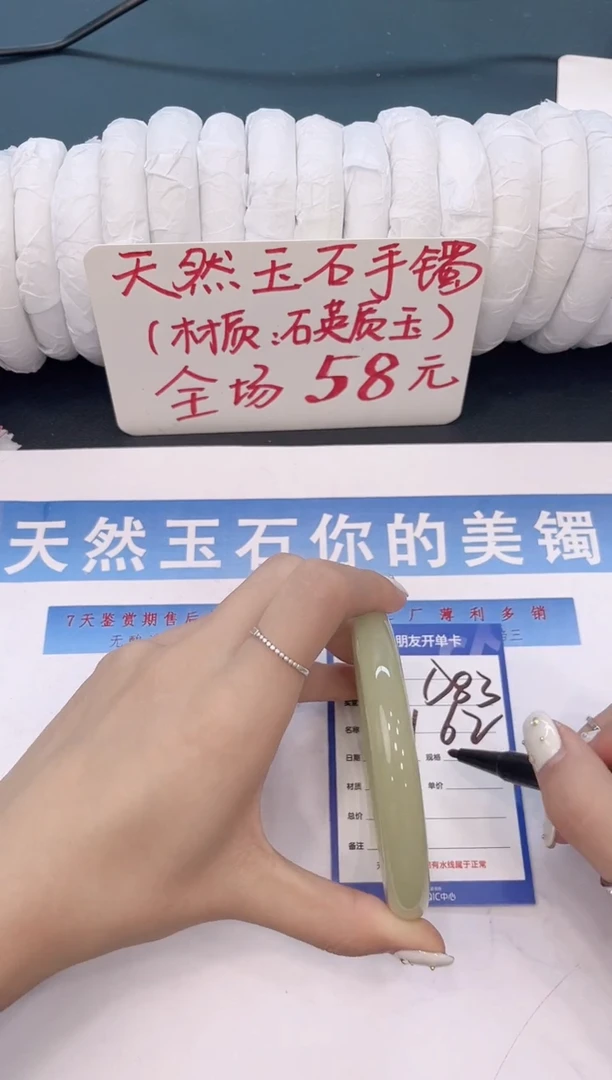 天然玉石手镯
(材质:石英质玉)
全场 58元
天然玉石你的美镯
7天鉴赏期售后
厂薄利多销
朋友开单卡
D83
62
名称
日期
规格
材质
单价
总价
备注
有水线属于正常
QIC中心